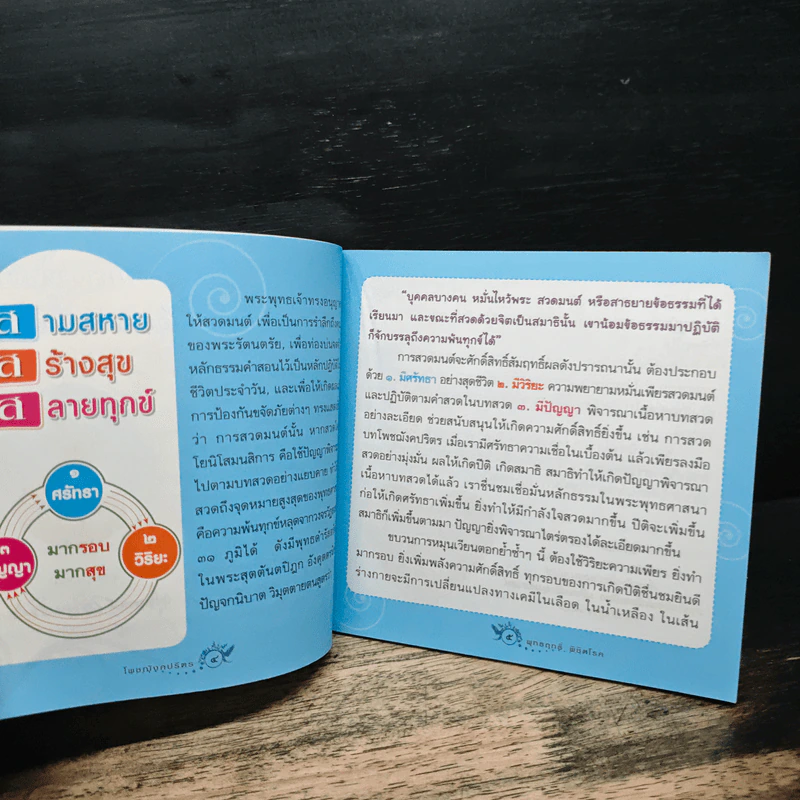 สามสหาย
สร้างสุข
สลายทุกข์
๑
ศรัทธา
๒
วิริยะ
๓
มากรอบ
มากสุข
พระพุทธเจ้าทรงอนุญา
ให้สวดมนต์ เพื่อเป็นการรำลึกถึง
ของพระรัตนตรัย, เพื่อท่องบ่น
หลักธรรมคำสอนไว้เป็นหลักปฏิบัติ
ชีวิตประจำวัน, และเพื่อให้เกิด
การป้องกันขจัดภัยต่างๆ ทรงแสดง
ว่า การสวดมนต์นั้น หากสวด
โยนิโสมนสิการ คือใช้ปัญญาพิจาร
ไปตามบทสวดอย่างแยบคาย
สวดถึงจุดหมายสูงสุดของพุทธ
คือความพ้นทุกข์หลุดจากวงจรวัฏ
๓๑ ภูมิได้ ดังมีพุทธดำรัส
ในพระสุตตันตปิฎก อังคุตต
ปัญจกนิบาต วิมุตตายตนสูตร
โพชฌังคปริตร
๔
"บุคคลบางคน หมั่นไหว้พระ สวดมนต์ หรือสาธยายข้อธรรมที่ได้
เรียนมา และขณะที่สวดด้วยจิตเป็นสมาธินั้น เขาน้อมข้อธรรมมาปฏิบัติ
ก็จักบรรลุถึงความพ้นทุกข์ได้"
การสวดมนต์จะศักดิ์สิทธิ์สัมฤทธิ์ผลดังปรารถนานั้น ต้องประกอบ
ด้วย ๑. มีศรัทธา อย่างสุดชีวิต ๒. มีวิริยะ ความพยายามหมั่นเพียรสวดมนต์
และปฏิบัติตามคำสวดในบทสวด ๓. มีปัญญา พิจารณาเนื้อหาบทสวด
อย่างละเอียด ช่วยสนับสนุนให้เกิดความศักดิ์สิทธิ์ยิ่งขึ้น เช่น การสวด
บทโพชฌังคปริตร เมื่อเรามีศรัทธาความเชื่อในเบื้องต้น แล้วเพียรลงมือ
สวดอย่างมุ่งมั่น ผลให้เกิดปีติ เกิดสมาธิ สมาธิทำให้เกิดปัญญาพิจารณา
เนื้อหาบทสวดได้แล้ว เราชื่นชมเชื่อมั่นหลักธรรมในพระพุทธศาสนา
ก่อให้เกิดศรัทธาเพิ่มขึ้น ยิ่งทำให้มีกำลังใจสวดมากขึ้น ปีติจะเพิ่มขึ้น
สมาธิก็เพิ่มขึ้นตามมา ปัญญายิ่งพิจารณาไตร่ตรองได้ละเอียดมากขึ้น
ขบวนการหมุนเวียนตอกย้ำซ้ำๆ นี้ ต้องใช้วิริยะความเพียร ยิ่งทำ
มากรอบ ยิ่งเพิ่มพลังความศักดิ์สิทธิ์ ทุกรอบของการเกิดปีติชื่นชมยินดี
ร่างกายจะมีการเปลี่ยนแปลงทางเคมีในเลือด ในน้ำเหลือง ในเส้น
๕
พุทธฤทธิ์ พิชิตโรค